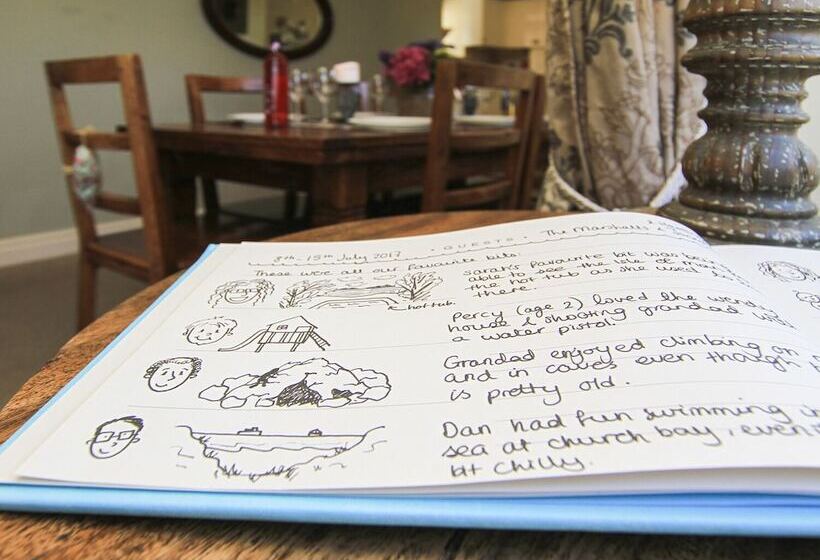 8th - 15th July 2017 · GUESTS · The Marshalls &
These were all our favourite bits:
Sarah's favourite bit was being
able to see the isle of
the hot tub as she used
there.
hot tub.
Percy (age 2) loved the wendy
house & shooting grandad with
a water pistol.
Grandad enjoyed climbing on
and in caves even though
is pretty old.
Dan had fun swimming in
sea at church bay, even
bit chilly.